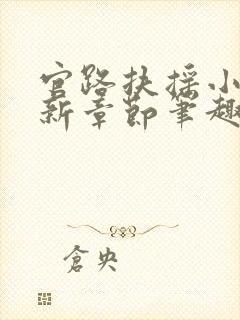 官路扶摇小
新章节笔趣
仓央